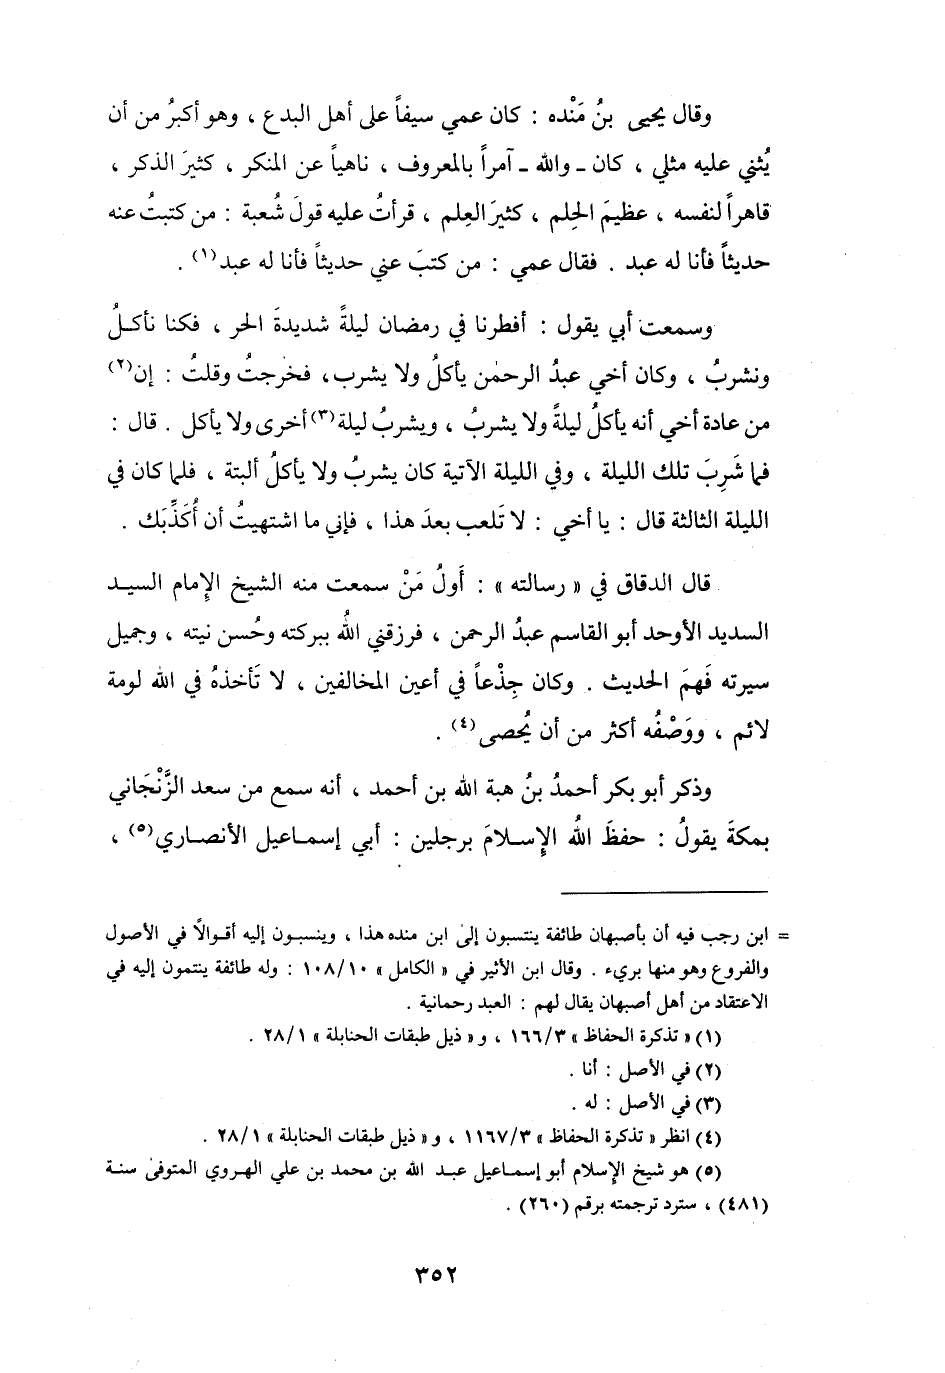 وقال يحيى بنُ مَنْده : كان عمي سيفاً على أهل البدع ، وهو أكبرُ من أن
يُثني عليه مثلي ، كان ـ والله ـ آمراً بالمعروف ، ناهياً عن المنكر ، كثيرَ الذكر ،
قاهراً لنفسه ، عظيمَ الحِلم ، كثيرَ العِلم ، قرأتُ عليه قولَ شُعبة : من كتبتُ عنه
حديثاً فأنا له عبد . فقال عمي : من كتبَ عني حديثاً فأنا له عبد(١) .
وسمعت أبي يقول : أفطرنا في رمضان ليلةً شديدةَ الحر ، فكنا نأكلُ
ونشربُ ، وكان أخي عبدُ الرحمٰن يأكلُ ولا يشرب، فخرجتُ وقلتُ : إن(٢)
من عادة أخي أنه يأكلُ ليلةً ولا يشربُ ، ويشربُ ليلة(٣) أخرى ولا يأكل . قال :
فما شَرِبَ تلك الليلة ، وفي الليلة الآتية كان يشربُ ولا يأكلُ ألبتة ، فلما كان في
الليلة الثالثة قال : يا أخي : لا تَلعب بعدَ هذا ، فإني ما اشتهيتُ أن أُكَذِّبَك .
قال الدقاق في « رسالته » : أَولُ مَنْ سمعت منه الشيخ الإِمام السيد
السديد الأوحد أبو القاسم عبدُ الرحمن ، فرزقني اللهُ ببركته وحُسن نيته ، وجميل
سيرته فَهمَ الحديث . وكان جِذْعاً في أعين المخالفين ، لا تَأخذهُ في الله لومة
لائم ، ووَصْفُه أكثر من أن يُحصى(٤) .
وذكر أبو بكر أحمدُ بنُ هبة الله بن أحمد ، أنه سمع من سعد الزَّنْجَاني
بمكةَ يقولُ : حفظَ اللهُ الإِسلامَ برجلين : أبي إسماعيل الأنصاري(٥) ،
= ابن رجب فيه أن بأصبهان طائفة ينتسبون إلى ابن منده هذا ، وينسبون إليه أقوالاً في الأصول
والفروع وهو منها بريء . وقال ابن الأثير في « الكامل » ١٠٨/١٠ : وله طائفة ينتمون إليه في
الاعتقاد من أهل أصبهان يقال لهم : العبد رحمانية .
(١) « تذكرة الحفاظ » ١٦٦/٣ ، و« ذيل طبقات الحنابلة » ٢٨/١ .
(٢) في الأصل : أنا .
(٣) في الأصل : له .
(٤) انظر « تذكرة الحفاظ » ١١٦٧/٣ ، و« ذيل طبقات الحنابلة » ٢٨/١ .
(٥) هو شيخ الإسلام أبو إسماعيل عبد الله بن محمد بن علي الهروي المتوفىٰ سنة
(٤٨١) ، سترد ترجمته برقم (٢٦٠) .
٣٥٢